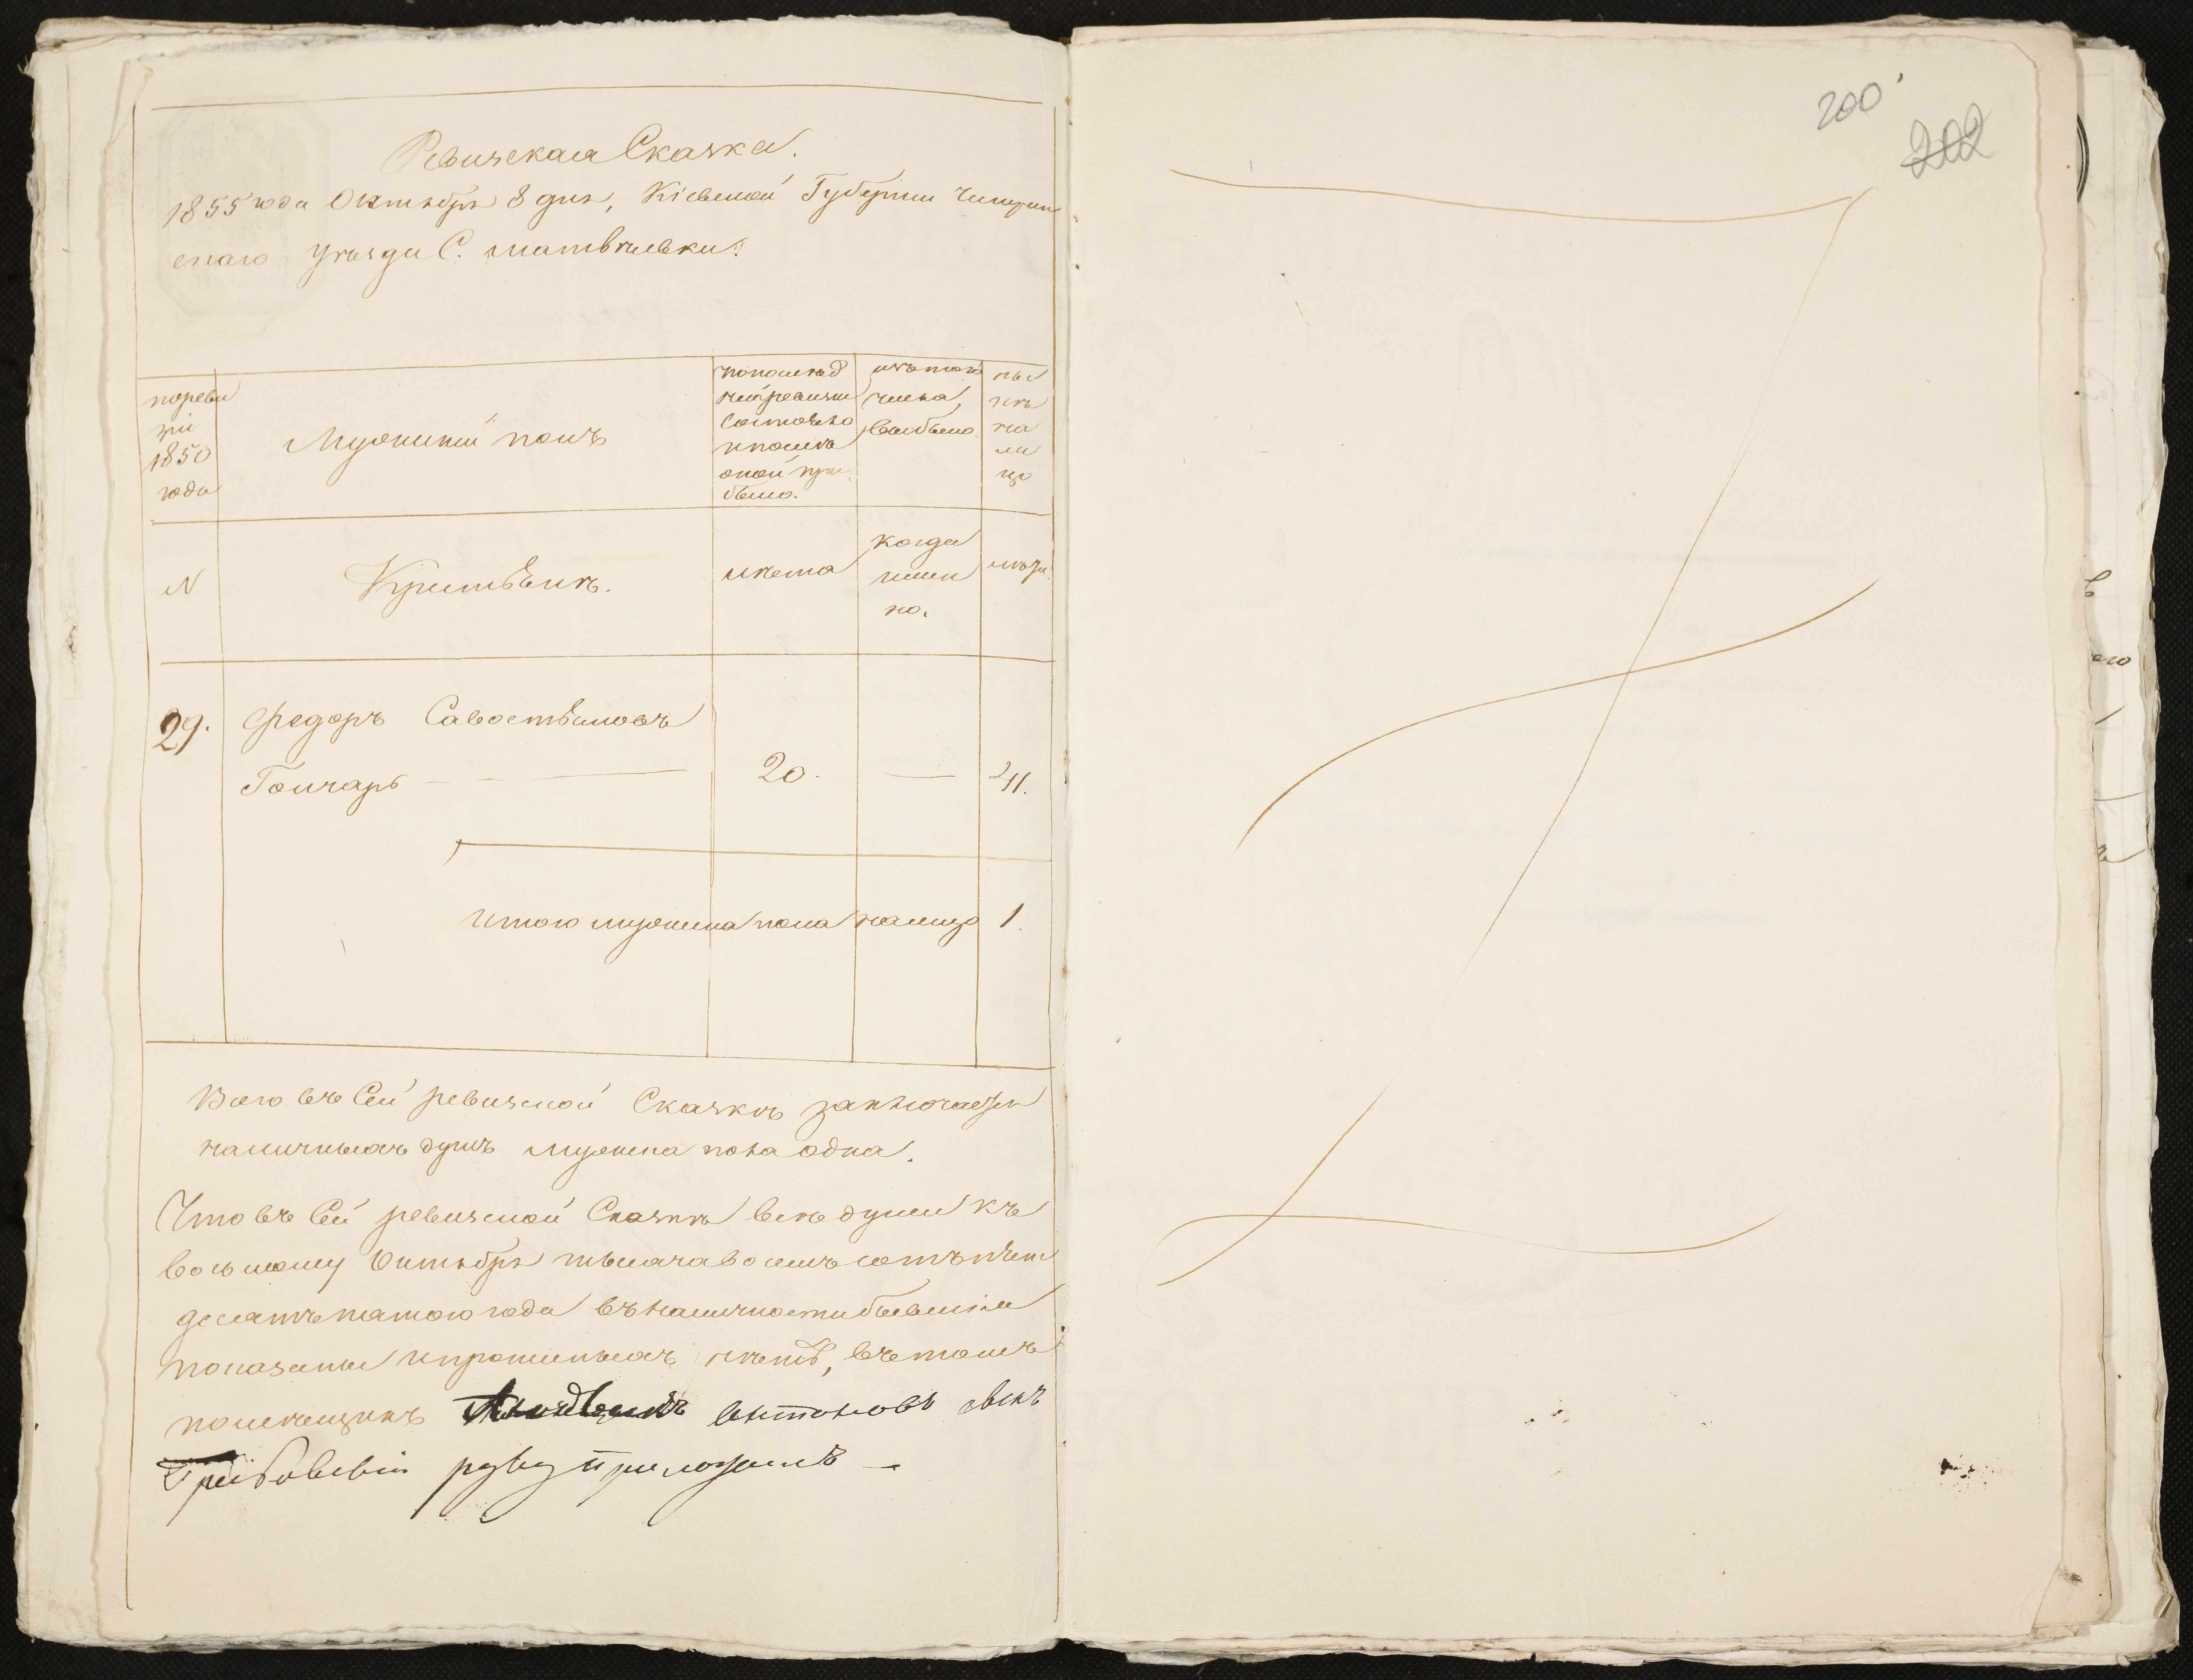 Ревизская Сказка.
1855 года Октября 8 дня, Кіевской Губерніи Чигрин
скаго Уѣзда С. Матвѣевки.
по реви
зіи
1850
года
Мужескій полъ
по послѣд
ней ревизіи
состояло
и послѣ
оной при
было.
изъ того
числа
выбыло
ны
нѣ
на
ли
цо
N
Крестьянъ.
лѣта
когда
имен
но.
лѣта.
29.
Федоръ Савостьяновъ
Гончаръ
20.
—
41.
Итого мужеска пола налицо 1.
Всего въ сей ревизской Сказкѣ заключается
наличныхъ душъ мужеска пола одна.
Что въ сей ревизской Сказкѣ всѣ души къ
восьмому Октября тысяча восемь сотъ пять
десятъ пятого года въ наличности бывшія
показаны и прописныхъ нѣтъ, въ томъ
помещикъ Антоновъ сынъ
руку приложилъ —
200
202